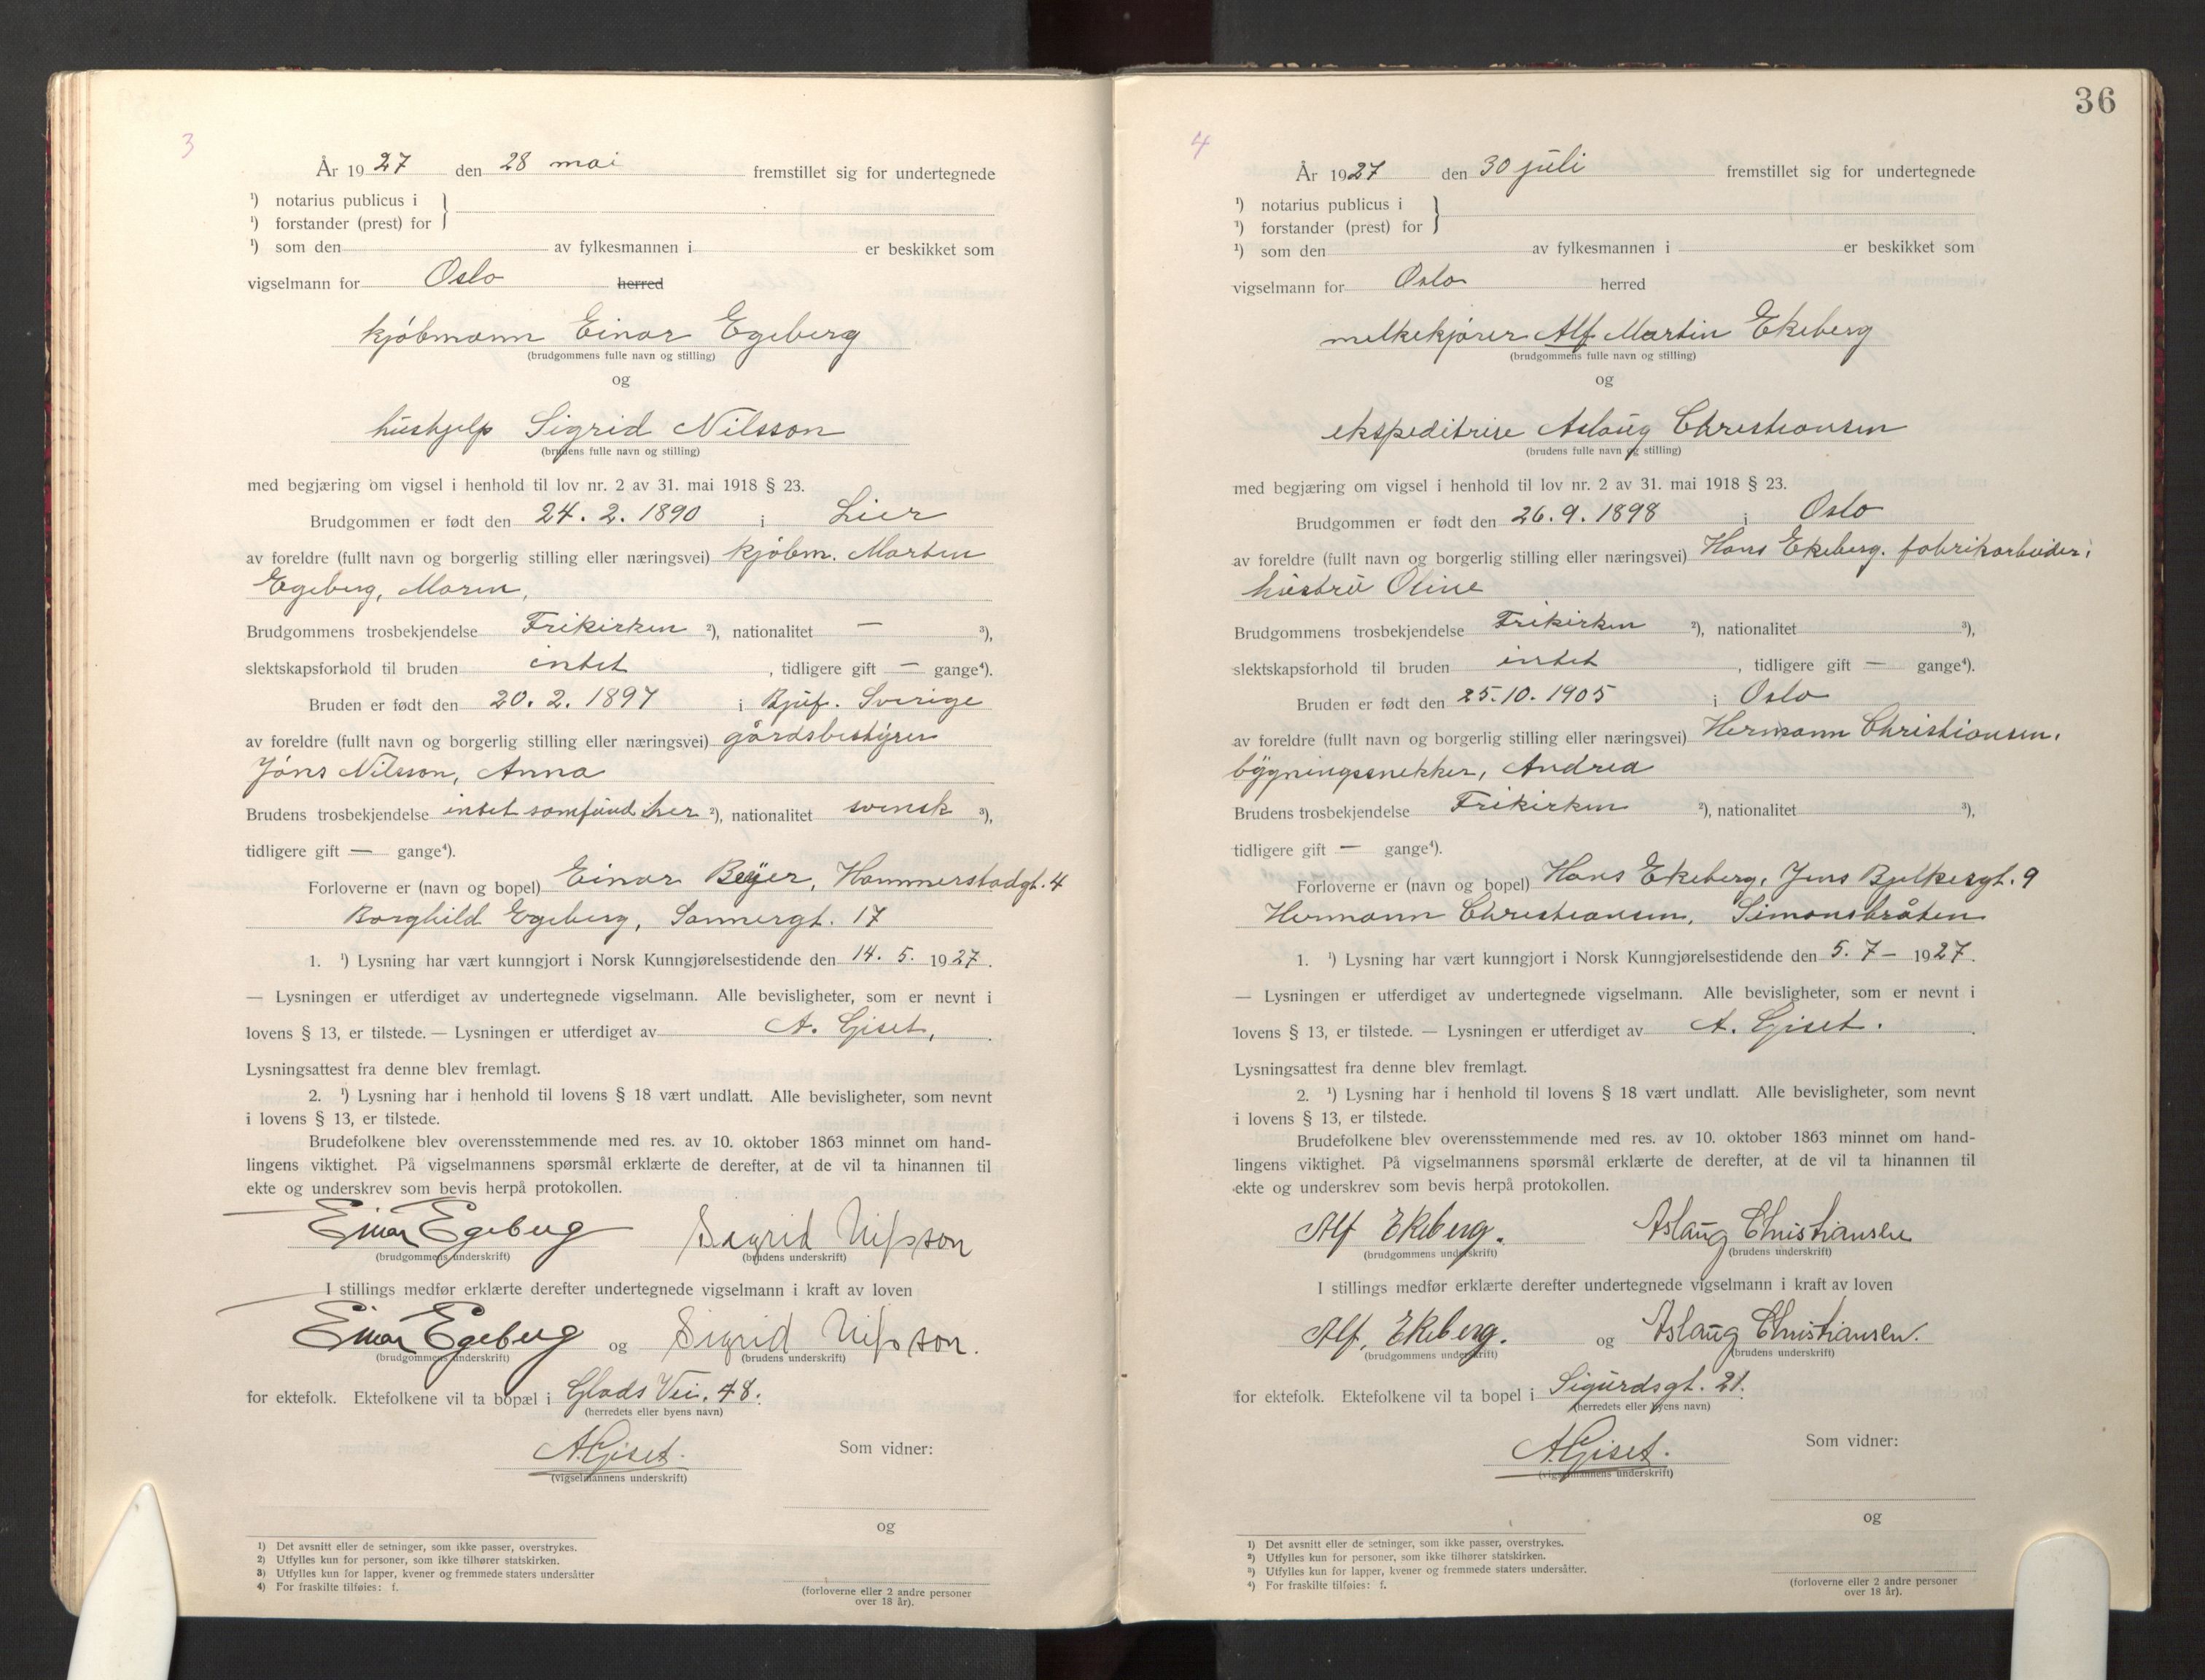 3
År 1927 den 28 mai fremstillet sig for undertegnede
¹) notarius publicus i
¹) forstander (prest) for }
¹) som den av fylkesmannen i er beskikket som
vigselmann for Oslo herred
kjøbmann Einar Egeberg
(brudgommens fulle navn og stilling)
og
hushjelp Sigrid Nilsson
(brudens fulle navn og stilling)
med begjæring om vigsel i henhold til lov nr. 2 av 31. mai 1918 § 23.
Brudgommen er født den 24. 2. 1890 i Lier
av foreldre (fullt navn og borgerlig stilling eller næringsvei) kjøbm. Martin
Egeberg, Maren,
Brudgommens trosbekjendelse Frikirken ²), nationalitet — ³),
slektskapsforhold til bruden intet, tidligere gift — gange⁴).
Bruden er født den 20. 2. 1897 i Bjuf. Sverige
av foreldre (fullt navn og borgerlig stilling eller næringsvei) gårdsbestyrer
Jøns Nilsson, Anna
Brudens trosbekjendelse intet samfund her ²), nationalitet svensk ³),
tidligere gift — gange⁴).
Forloverne er (navn og bopel) Einar Beyer, Hammerstadgt. 4
Borghild Egeberg, Sannergt. 17
1. ¹) Lysning har vært kunngjort i Norsk Kunngjørelsestidende den 14. 5. 1927.
— Lysningen er utferdiget av undertegnede vigselmann. Alle bevisligheter, som er nevnt i
lovens § 13, er tilstede. — Lysningen er utferdiget av A. Giset,.
Lysningsattest fra denne blev fremlagt.
2. ¹) Lysning har i henhold til lovens § 18 vært undlatt. Alle bevisligheter, som nevnt
i lovens § 13, er tilstede.
Brudefolkene blev overensstemmende med res. av 10. oktober 1863 minnet om hand-
lingens viktighet. På vigselmannens spørsmål erklærte de derefter, at de vil ta hinannen til
ekte og underskrev som bevis herpå protokollen.
Einar Egeberg Sigrid Nilsson
(brudgommens underskrift) (brudens underskrift)
I stillings medfør erklærte derefter undertegnede vigselmann i kraft av loven
Einar Egeberg og Sigrid Nilsson.
(brudgommens underskrift) (brudens underskrift)
for ektefolk. Ektefolkene vil ta bopæl i Glads Vei. 48.
(herredets eller byens navn)
A. Giset. Som vidner:
(vigselmannens underskrift)
og
1) Det avsnitt eller de setninger, som ikke passer, overstrykes.
2) Utfylles kun for personer, som ikke tilhører statskirken.
3) Utfylles kun for lapper, kvener og fremmede staters undersåtter
4) For fraskilte tilføies: f.
(forloverne eller 2 andre personer
over 18 år).
36
4
År 1927 den 30 juli fremstillet sig for undertegnede
¹) notarius publicus i
¹) forstander (prest) for }
¹) som den av fylkesmannen i er beskikket som
vigselmann for Oslo herred
melkekjører Alf Martin Ekeberg
(brudgommens fulle navn og stilling)
og
ekspeditrise Aslaug Christiansen
(brudens fulle navn og stilling)
med begjæring om vigsel i henhold til lov nr. 2 av 31. mai 1918 § 23.
Brudgommen er født den 26. 9. 1898 i Oslo
av foreldre (fullt navn og borgerlig stilling eller næringsvei) Hans Ekeberg. fabrikarbeider,
hustru Oline
Brudgommens trosbekjendelse Frikirken ²), nationalitet ³),
slektskapsforhold til bruden intet, tidligere gift — gange⁴).
Bruden er født den 25. 10. 1905 i Oslo
av foreldre (fullt navn og borgerlig stilling eller næringsvei) Hermann Christiansen,
bygningssnekker, Andrea
Brudens trosbekjendelse Frikirken ²), nationalitet ³),
tidligere gift — gange⁴).
Forloverne er (navn og bopel) Hans Ekeberg, Jens Bjelkesgt. 9
Hermann Christiansen, Simonsbråten
1. ¹) Lysning har vært kunngjort i Norsk Kunngjørelsestidende den 5. 7 – 1927.
— Lysningen er utferdiget av undertegnede vigselmann. Alle bevisligheter, som er nevnt i
lovens § 13, er tilstede. — Lysningen er utferdiget av A. Giset.
Lysningsattest fra denne blev fremlagt.
2. ¹) Lysning har i henhold til lovens § 18 vært undlatt. Alle bevisligheter, som nevnt
i lovens § 13, er tilstede.
Brudefolkene blev overensstemmende med res. av 10. oktober 1863 minnet om hand-
lingens viktighet. På vigselmannens spørsmål erklærte de derefter, at de vil ta hinannen til
ekte og underskrev som bevis herpå protokollen.
Alf Ekeberg. Aslaug Christiansen
(brudgommens underskrift) (brudens underskrift)
I stillings medfør erklærte derefter undertegnede vigselmann i kraft av loven
Alf. Ekeberg. og Aslaug Christiansen.
(brudgommens underskrift) (brudens underskrift)
for ektefolk. Ektefolkene vil ta bopel i Sigurdsgt. 21.
(herredets eller byens navn)
A. Giset. Som vidner:
(vigselmannens underskrift)
og
1) Det avsnitt eller de setninger, som ikke passer, overstrykes.
²) Utfylles kun for personer, som ikke tilhører statskirken.
³) Utfylles kun for lapper, kvener og fremmede staters undersåtter.
⁴) For fraskilte tilføies: f.
(forloverne eller 2 andre personer
over 18 år).